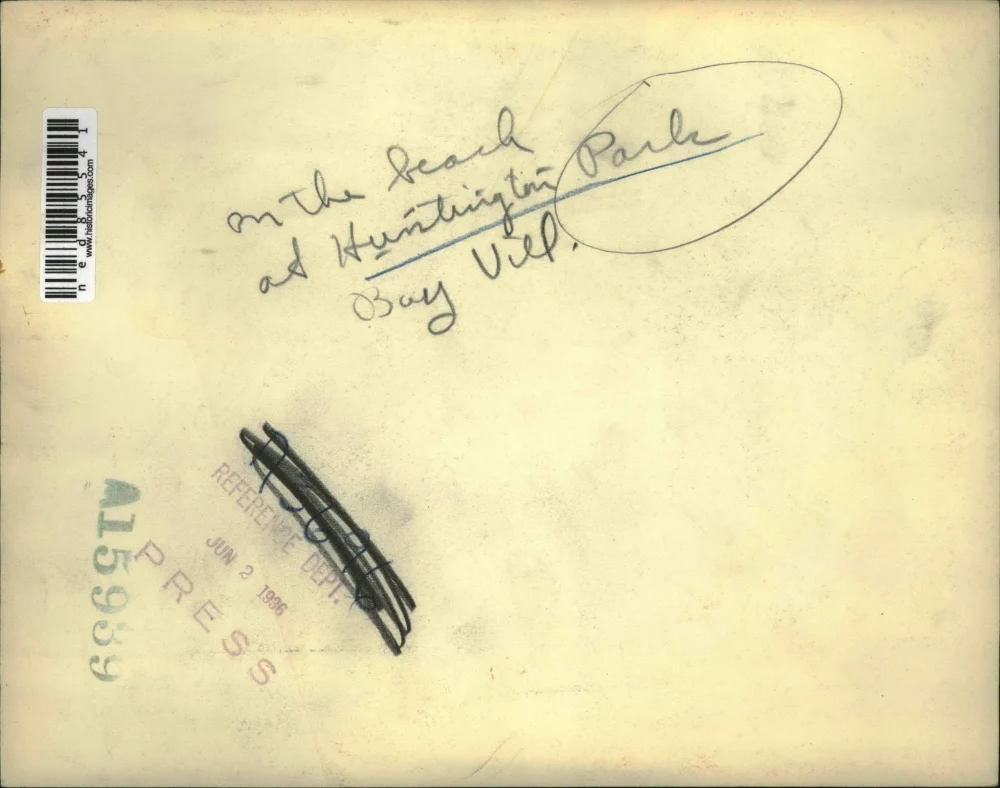 on the beach
at Huntington Park
Bay Vill.
ned85541
www.historicimages.com
REFERENCE DEPT.
JUN 2 1936
PRESS
A15939